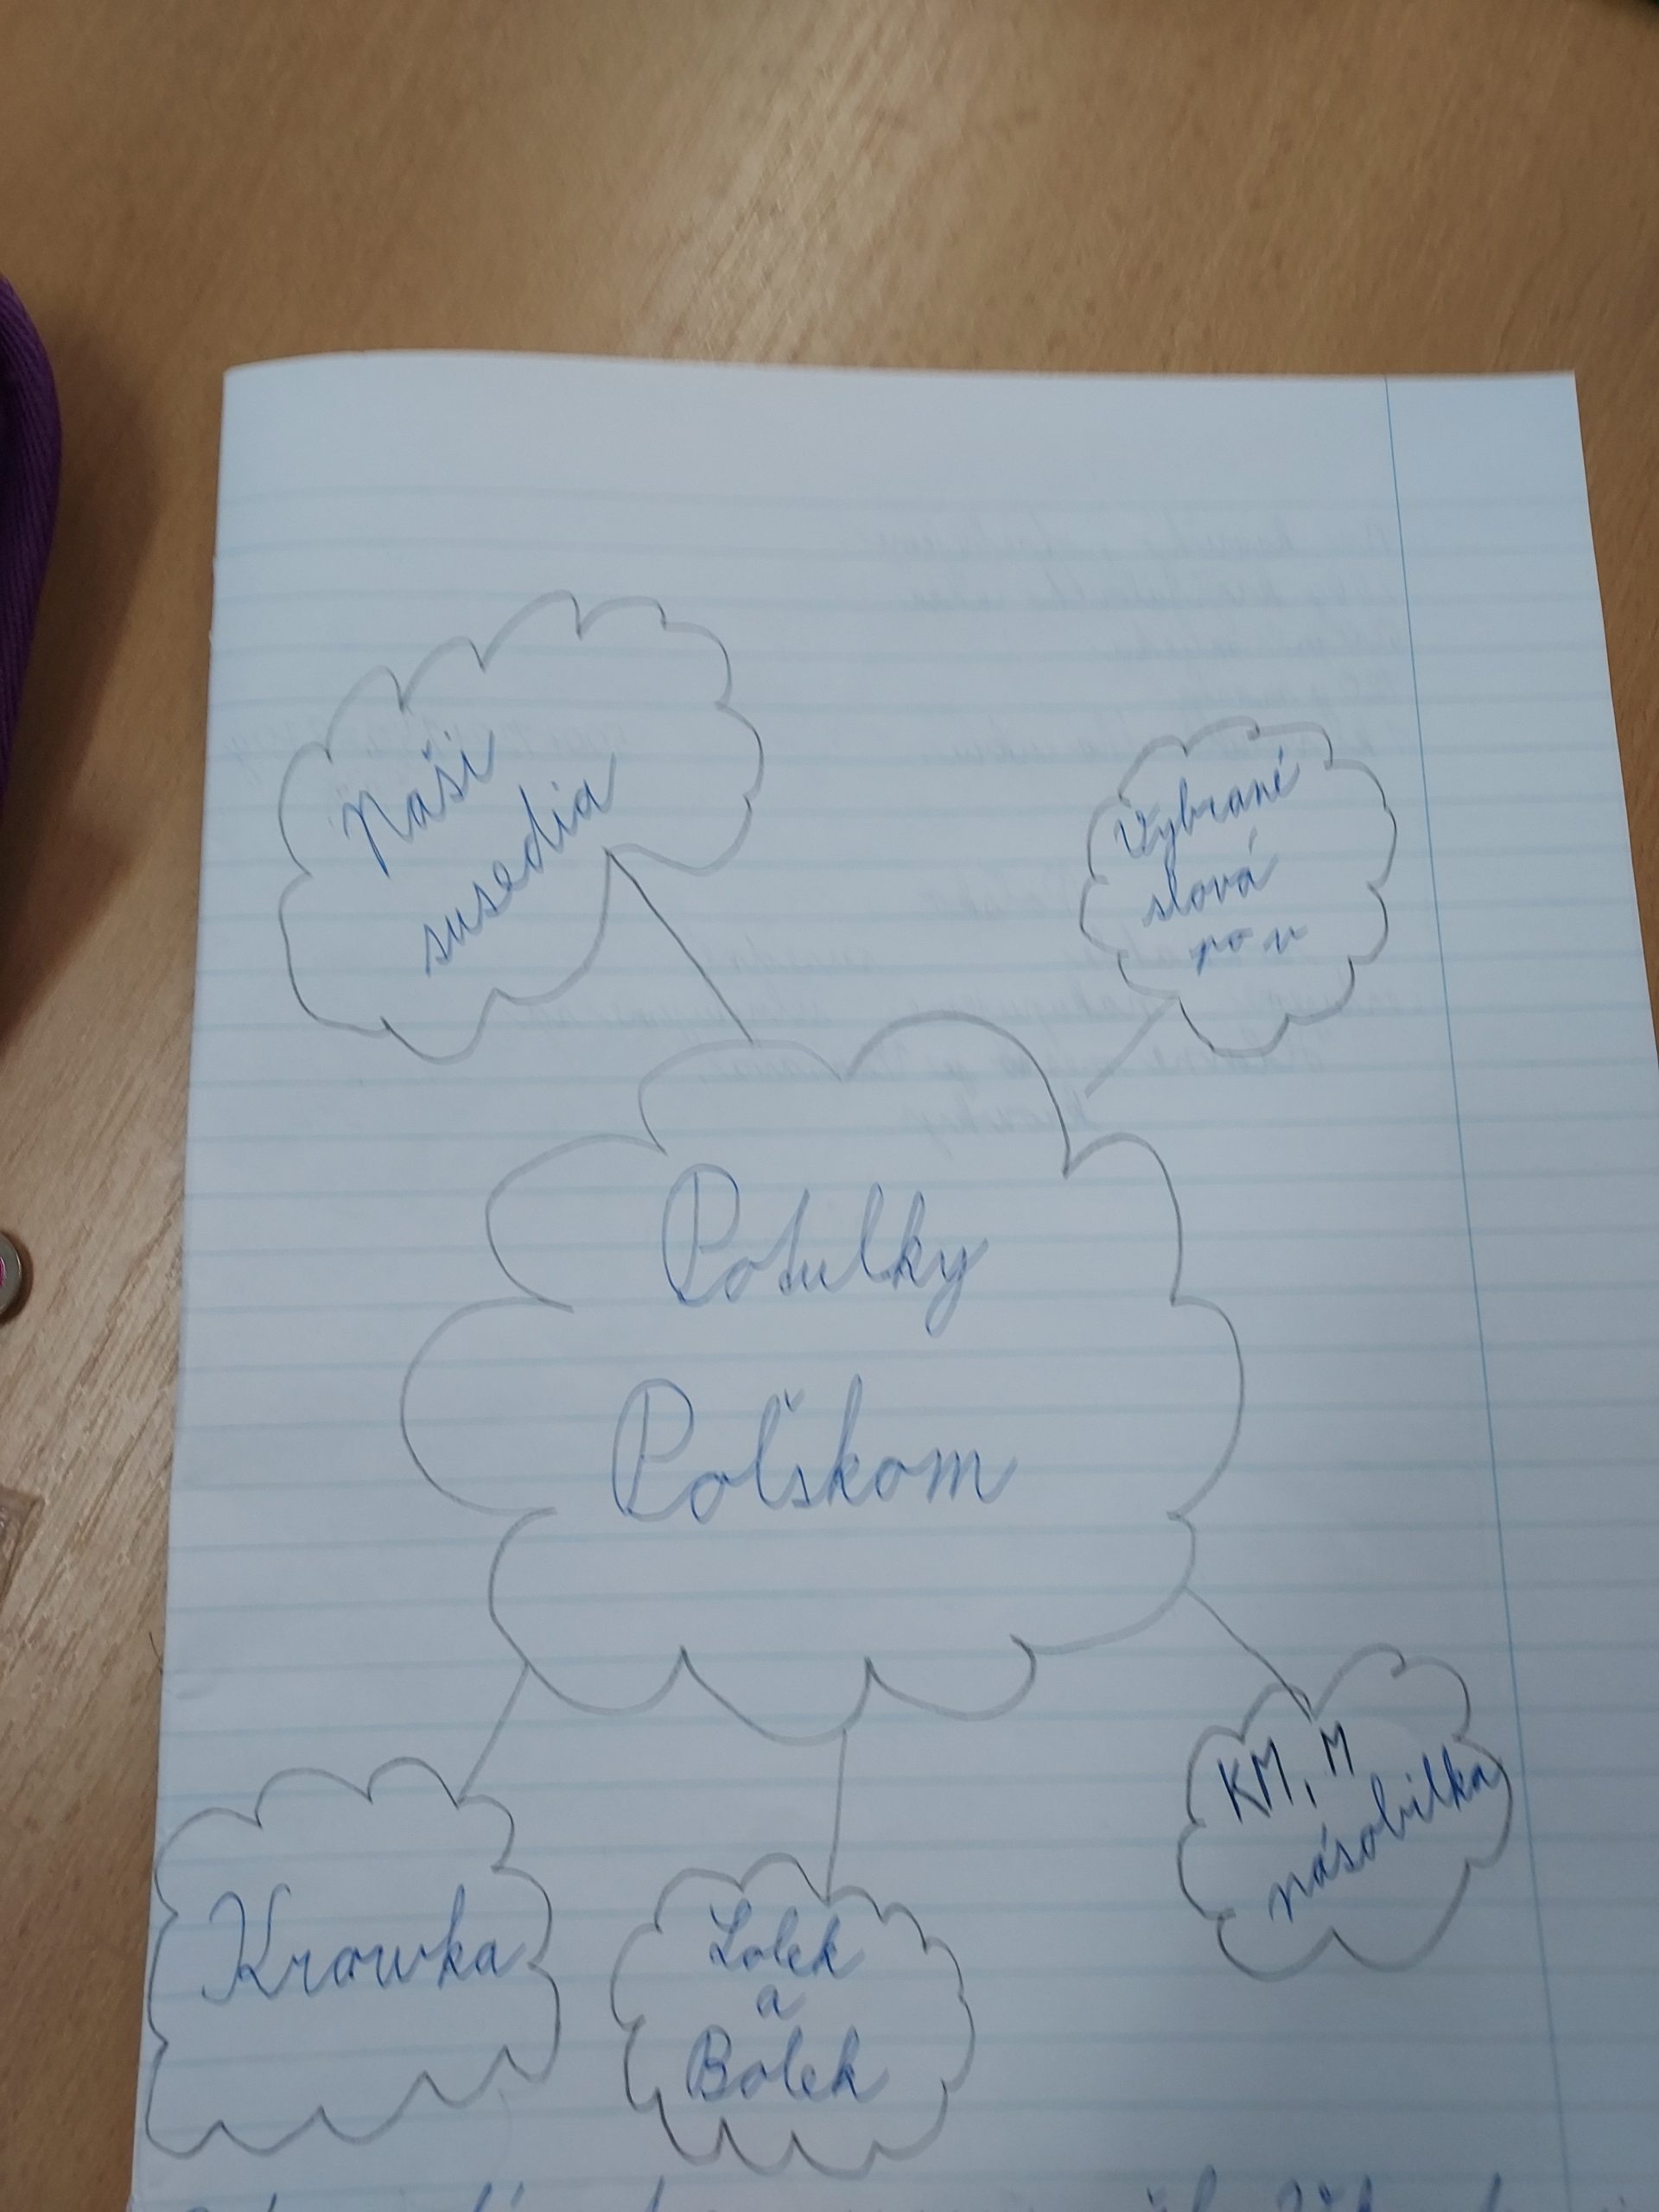 Naši
susedia
Vybrané
slová
po v
Potulky
Poľskom
KM, M
násobilka
Krowka
Lolek
a
Bolek